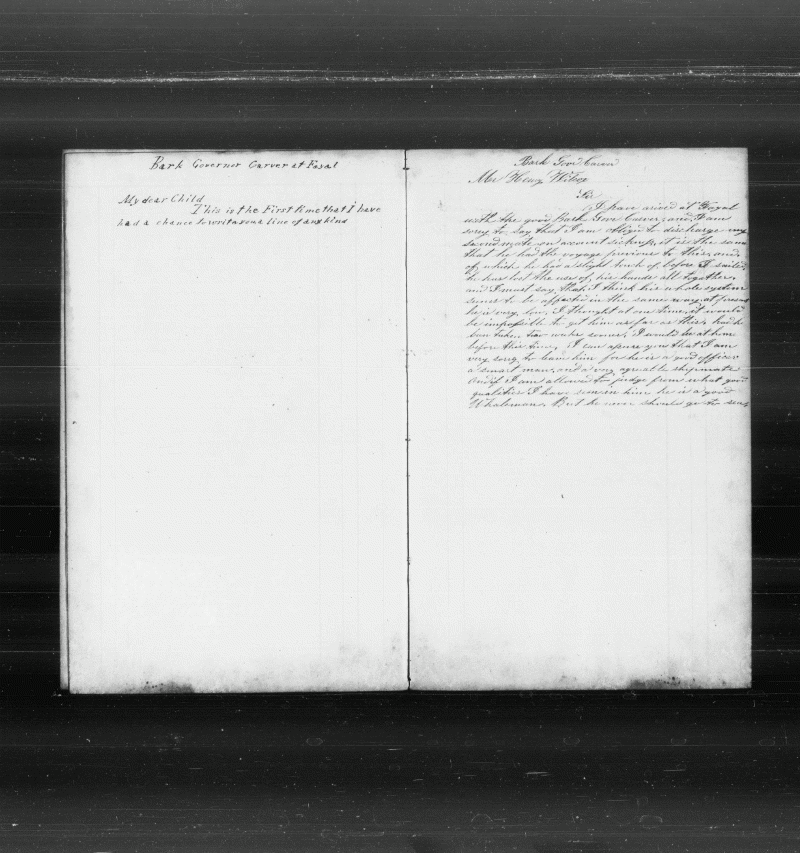 Bark Governor Carver at Fayal
My dear Child
This is the First time that I have
had a chance to writ a one line of any kind
Bark Govr Carver
Mr Henry Wilcox
Sir
I have arived at Fayal
with the good Bark Gove Carver, and I am
sory to say that I am oblige to discharge my
second mate on account sickness, it is the same
that he had the voyage previous to this, and
of which he had a slight touch of before I sailed
he has lost the use of his hands all together,
and I must say that I think his whole system
seames to be affected in the same way, at present
he is very low, I thought at one time it would
be impossible to get him as far as this, had he
ben taken two weeks sooner, I would be at home
before this time, I can assure you that I am
very sorry to leave him for he is a good officer
a smart man, and a very agreable shipmate
And if I am allowed to judge from what good
qualities I have seen in him he is a good
Whaleman, But he never should go to sea,